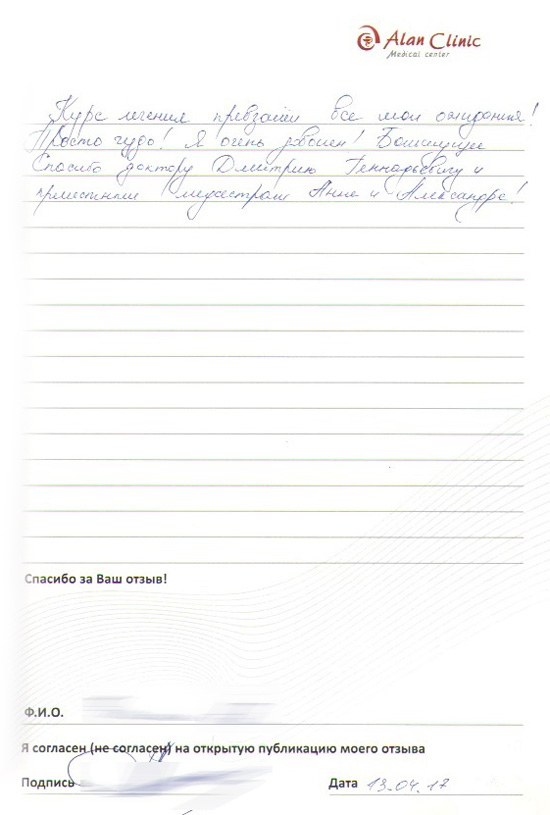 Alan Clinic
Medical center
Курс лечения превзошёл все мои ожидания!
Просто чудо! Я очень доволен! Большущее
Спасибо доктору Дмитрию Геннадьевичу и
медсестрам Анне и Александре!
Спасибо за Ваш отзыв!
Ф.И.О.
Я согласен (не согласен) на открытую публикацию моего отзыва
Подпись
Дата 13.04.17